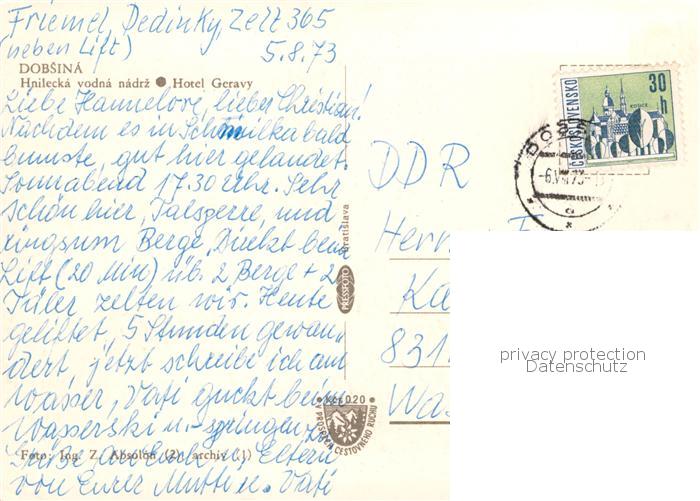 Friemel, Dedinky, Zelt 365
(neben Lift) 5.8.73
DOBŠINÁ
Hnilecká vodná nádrž ● Hotel Geravy
Liebe Hannelore, lieber Christian!
Nachdem es in Schmilka bald
bumste, gut hier gelandet.
Sonnabend 17.30 Uhr. Sehr
schön hier, Talsperre, und
ringsum Berge. Direkt beim
Lift (20 Min) üb. 2 Berge + 2
Täler zelten wir. Heute
geliftet, 5 Stunden gewan-
dert, jetzt schreibe ich am
Wasser, Vati guckt beim
Wasserski u. -springen zu.
Grüße u. Eltern
von Eurer Mutti u. Vati
Foto: Ing. Z. Absolon (2) archív (1)
PRESSFOTO Bratislava
Kčs 0,20
V PROSPECH CESTOVNÉHO RUCHU
ČESKOSLOVENSKO
30 h
KOŠICE
DDR
Herrn F
Ka
831
Wa
privacy protection
Datenschutz